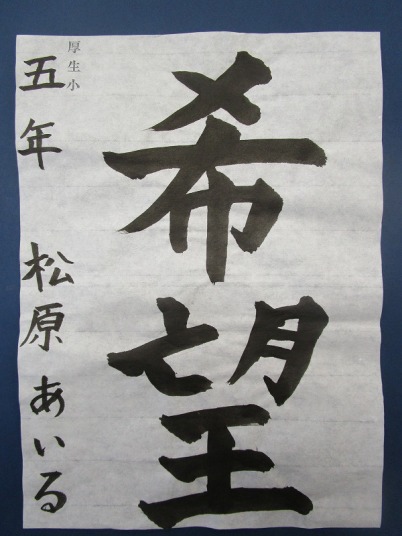 希望
厚生小
五年 松原あいる